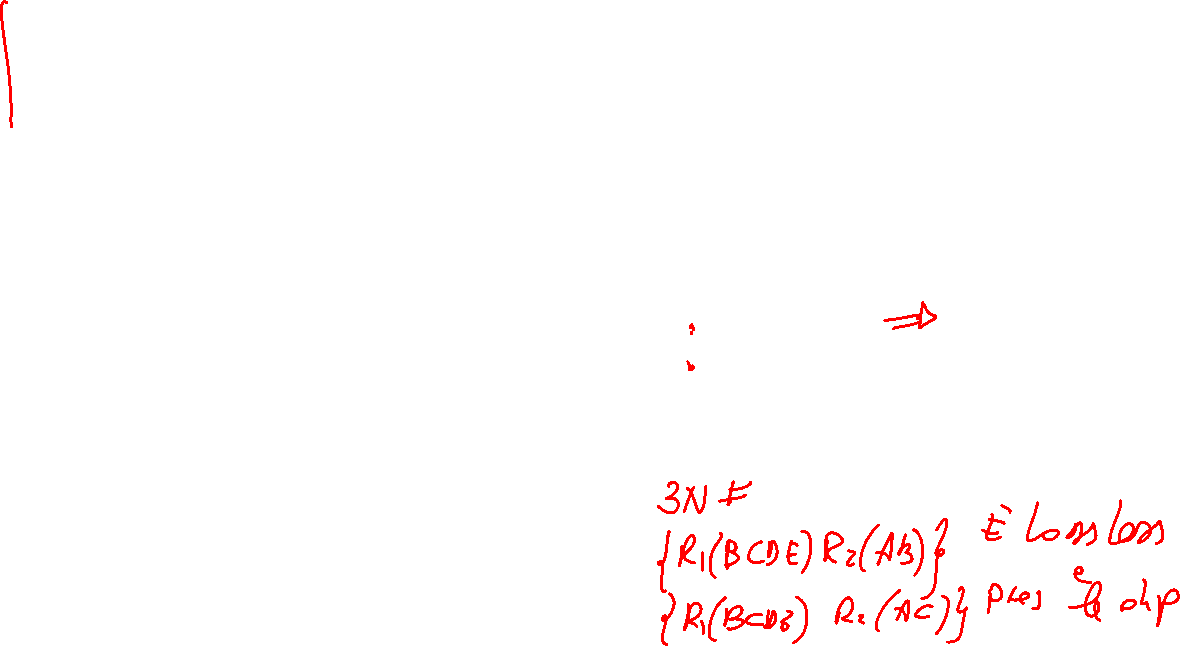 3NF
{R1(BCDE) R2(AB)} È lossless
{R1(BCDE) R2(AC)} pres le dip